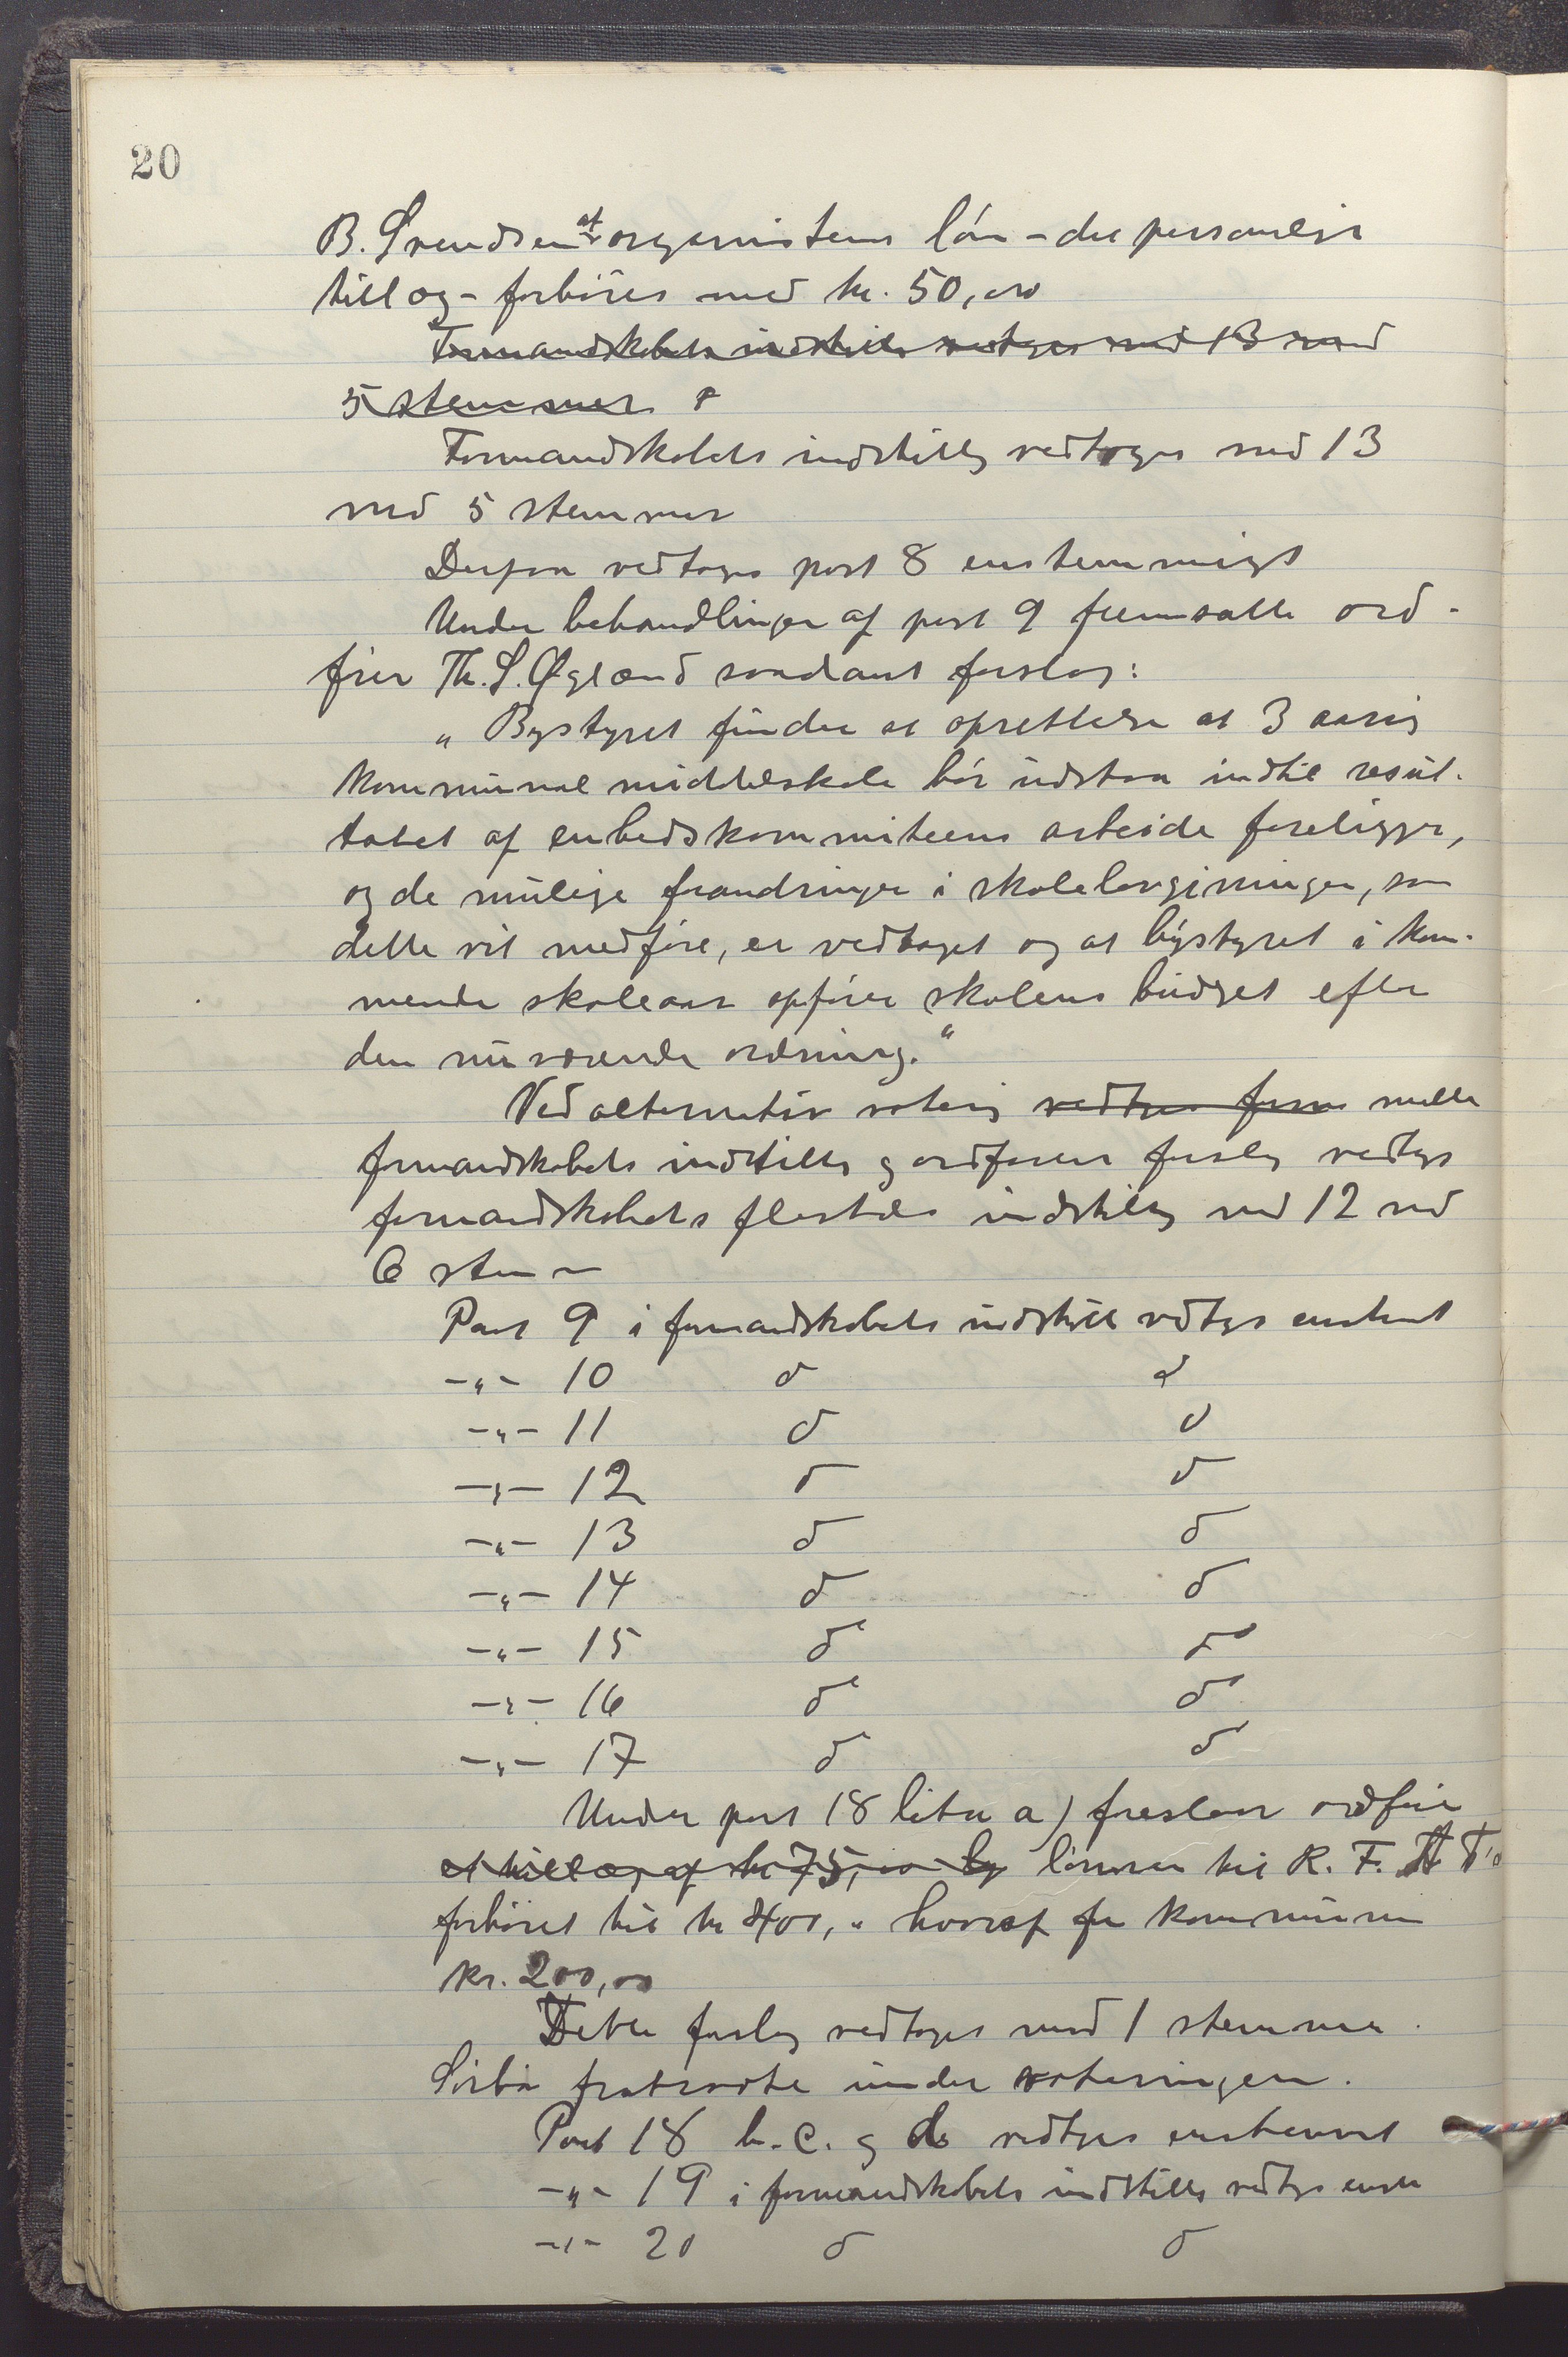 20
B. Svendsen at organistens løn - det personlige
tillæg - forhöies med kr. 50,00
Formandskabets indstilln vedtoges med 13 mod
5 stemmer
Formandskabets indstilling vedtoges med 13
mod 5 stemmer
Derpaa vedtoges post 8 enstemmigt
Under behandlingen af post 9 fremsatte ord-
förer Th. S. Øglænd saadant forslag:
"Bystyret finder at oprettelse at 3 aarig
kommunal middelskole bör udstaa indtil resul-
tatet af enhedskommiteens arbeide foreligger,
og de mulige forandringer i skolelovgivningen, som
dette vil medföre, er vedtaget og at bystyret i kom-
mende skoleaar opförer skolens budget efter
den nuværende ordning."
Ved alternativ votering vedtoges form mellem
formandskabets indstilling og ordförerens forslag vedtoges
formandskabets flertals indstilling med 12 mod
6 stemmer
Post 9 i formandskabets indstill vedtoges enstemt
-"- 10 do do
-"- 11 do do
-"- 12 do do
-"- 13 do do
-"- 14 do do
-"- 15 do do
-"- 16 do do
-"- 17 do do
Under post 18 litra a) foreslaar ordförer
et tillæg af kr 75,00 lönnen til R. F.
forhöiet til kr 400,- hvoraf fra kommunen
kr. 200,00
Dette forslag vedtoges mod 1 stemme.
Sörbö fratraadte under voteringen.
Post 18 b. c. og d. vedtoges enstemmet
-"- 19 i formandskabets indstilling vedtoges enst
-"- 20 do do